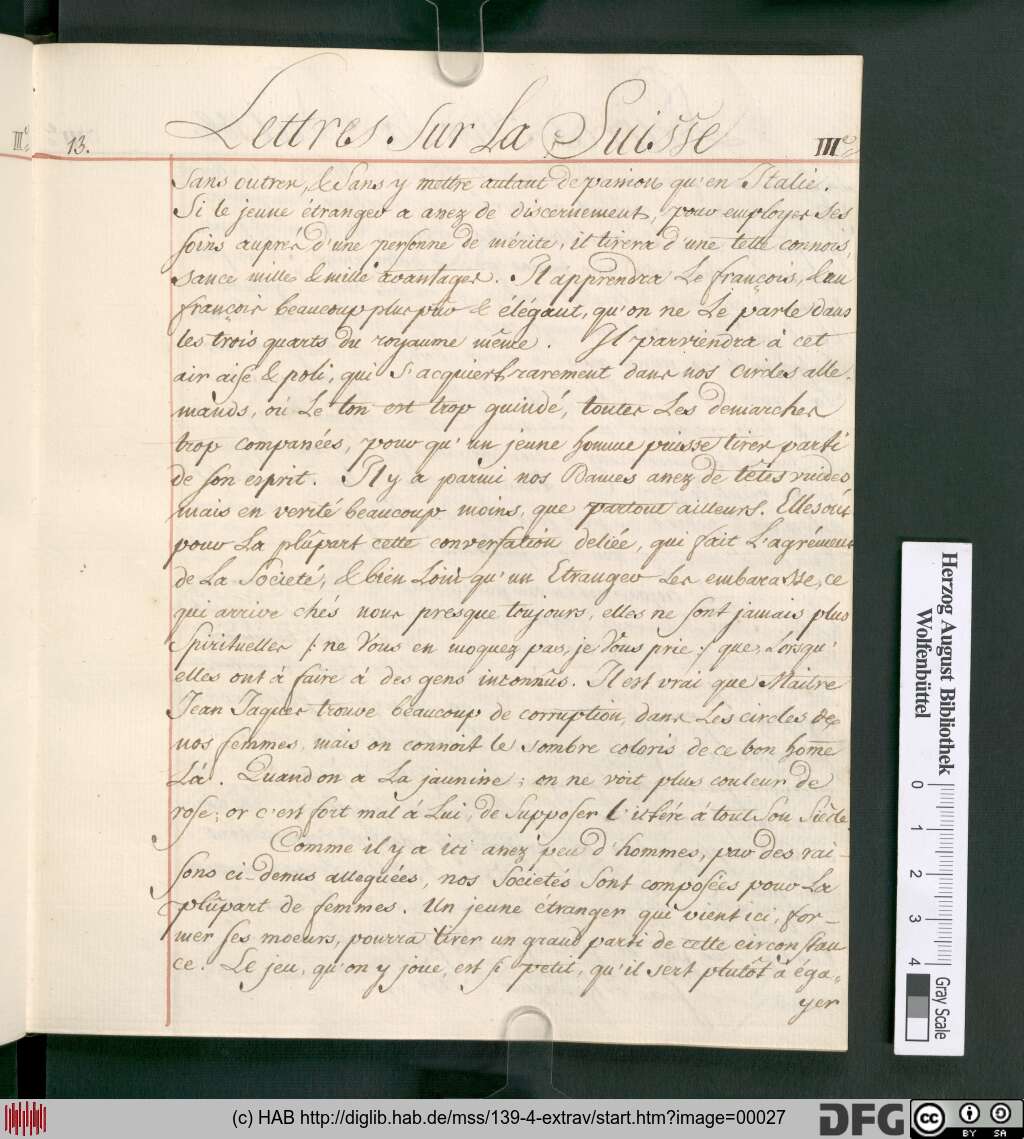 IIIe
13.
Lettres sur La Suisse
IIIe
sans outrer, & sans y mettre autant de passion qu'en Italie.
Si le jeune étranger a assez de discernement, pour employer ses
soins auprés d'une personne de mérite, il tirera d'une telle connois,
sance mille & mille avantages. Il apprendra Le françois, & un
françois beaucoup plus pur & élégant, qu'on ne Le parle dans
les trois quarts du royaume même. Il parviendra à cet
air aise & poli, qui s'acquiert rarement dans nos circles alle,
mands, où Le ton est trop guindé, toutes Les demarches
trop compassées, pour qu'un jeune homme puisse tirer parti
de son esprit. Il y a parmi nos Dames assez de têtes vuides
mais en verité beaucoup moins, que partout ailleurs. Elles ont
pour La plûpart cette conversation deliée, qui fait L'agrément
de La Societé, & bien Loin qu'un Etranger Les embarasse, ce
qui arrive chés nous presque toujours, elles ne sont jamais plus
spirituelles /: ne Vous en moquez pas, je Vous prie :/ que, Lorsqu'
elles ont à faire à des gens inconnûs. Il est vrai que Maitre
Jean Jaques trouve beaucoup de corruption, dans Les circles de
nos femmes, mais on connoit le sombre coloris de ce bon home
Là. Quand on a La jaunisse, on ne voit plus couleur de
rose; or c'est fort mal à Lui, de supposer L'ictére à tout son Siécle.
Comme il y a ici assez peu d'hommes, par des rai-
sons ci-dessus alleguées, nos Societés sont composées pour La
plûpart de femmes. Un jeune étranger qui vient ici, for-
mer ses moeurs, pourra tirer un grand parti de cette circonstan
ce. Le jeu, qu'on y joue, est si petit, qu'il sert plutôt à éga,
yer
Herzog August Bibliothek
Wolfenbüttel
0 1 2 3 4
Gray Scale
(c) HAB http://diglib.hab.de/mss/139-4-extrav/start.htm?image=00027
DFG
cc BY SA